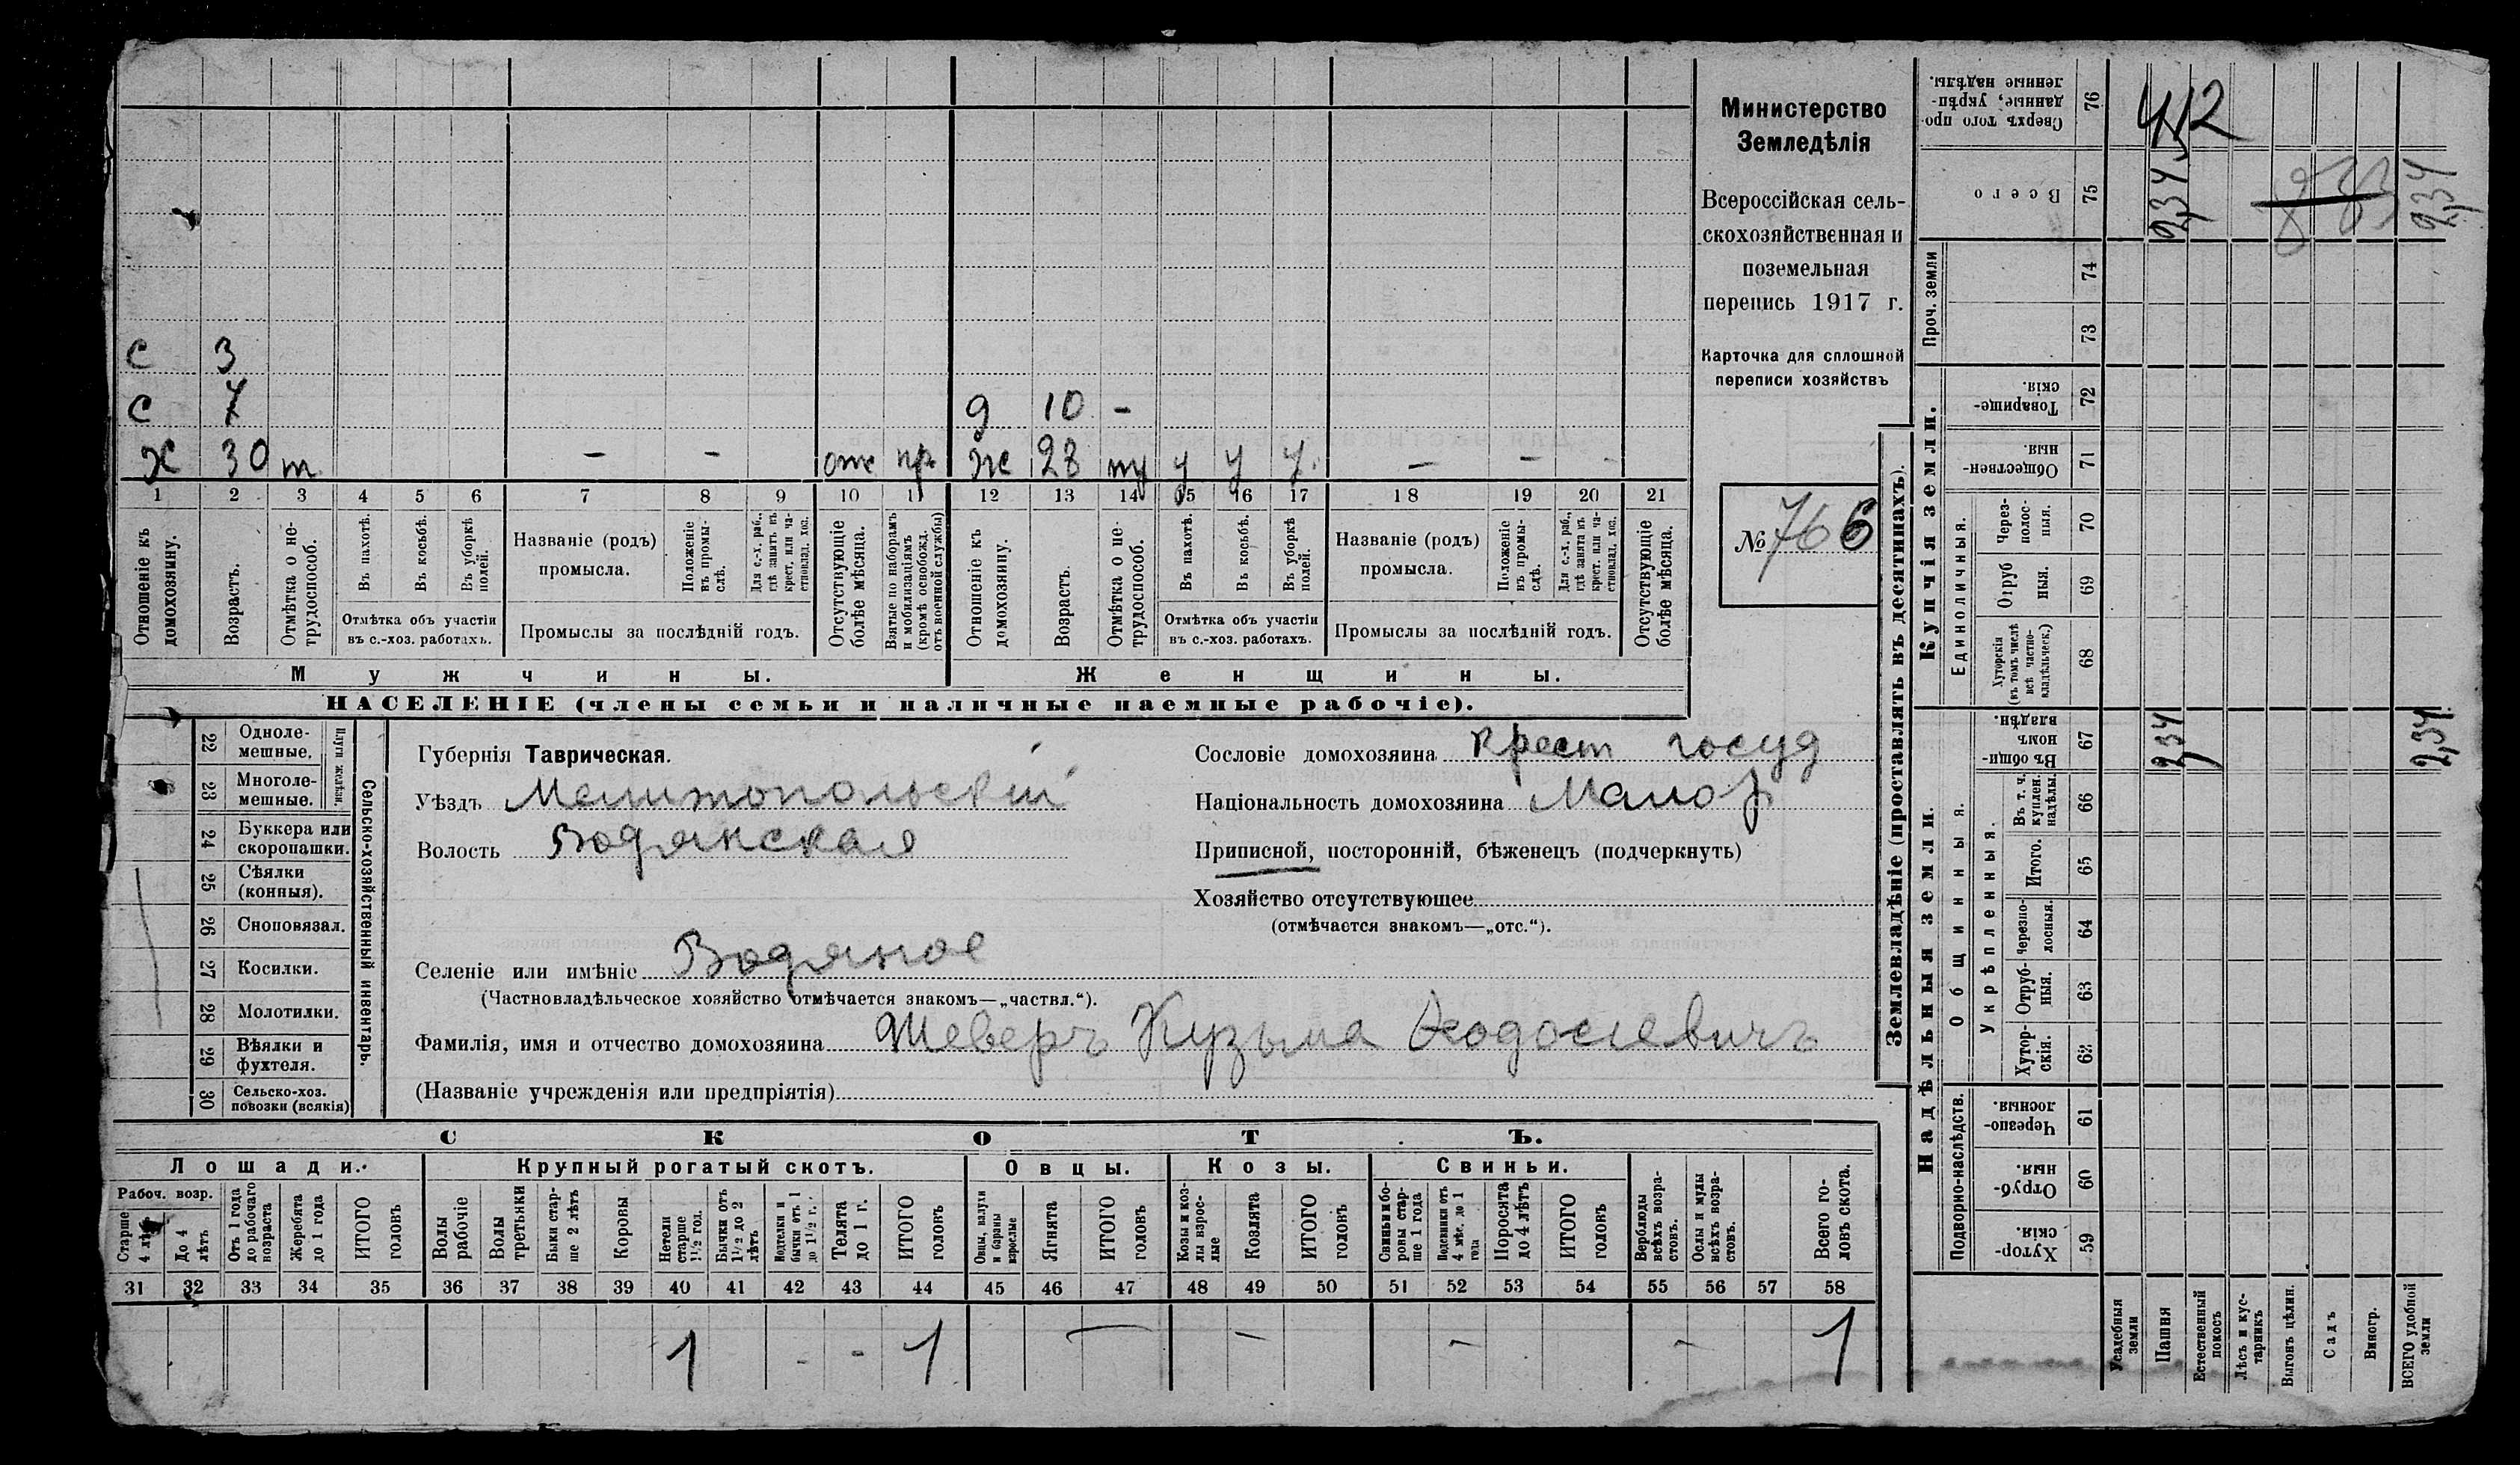 С 3
С 7 д 10 -
Х 30 т - - отс пр ж 28 тр у у у - - -
1 2 3 4 5 6 7 8 9 10 11 12 13 14 15 16 17 18 19 20 21
Отношеніе къ домохозяину.
Возрастъ.
Отмѣтка о не-
трудоспособ.
Въ пахотѣ.
Въ косьбѣ.
Въ уборкѣ полей.
Отмѣтка объ участіи
въ с.-хоз. работахъ.
Названіе (родъ)
промысла.
Положеніе въ промы-
слѣ.
Для с.-х. раб.,
гдѣ занятъ въ
крест. или ча-
стновлад. хоз.
Промыслы за послѣдній годъ.
Отсутствующіе
болѣе мѣсяца.
Взятые по наборамъ
и мобилизаціямъ
(кромѣ освобожд.
отъ военной службы)
Отношеніе къ
домохозяину.
Возрастъ.
Отмѣтка о не-
трудоспособ.
Въ пахотѣ.
Въ косьбѣ.
Въ уборкѣ
полей.
Отмѣтка объ участіи
въ с.-хоз. работахъ.
Названіе (родъ)
промысла.
Положеніе
въ промы-
слѣ.
Для с.-х. раб.,
гдѣ занята въ
крест. или ча-
стновлад. хоз.
Промыслы за послѣдній годъ.
Отсутствующіе
болѣе мѣсяца.
Мужчины. Женщины.
НАСЕЛЕНІЕ (члены семьи и наличные наемные рабочіе).
Министерство
Земледѣлія
Всероссійская сель-
скохозяйственная и
поземельная
перепись 1917 г.
Карточка для сплошной
переписи хозяйствъ
№ 766
22 Одноле-
мешные.
23 Многоле-
мешные.
Плуги желѣзн.
24 Буккера или
скоропашки.
25 Сѣялки
(конныя).
26 Сноповязал.
27 Косилки.
28 Молотилки.
29 Вѣялки и
фухтеля.
30 Сельско-хоз.
повозки (всякія)
Сельско-хозяйственный инвентарь.
Губернія Таврическая.
Уѣздъ Мелитопольскій
Волость Водянская
Селеніе или имѣніе Водяное
(Частновладѣльческое хозяйство отмѣчается знакомъ—„частвл.“).
Фамилія, имя и отчество домохозяина Шеверъ Кузьма Ѳеодосіевичъ
(Названіе учрежденія или предпріятія)
Сословіе домохозяина крест госуд
Національность домохозяина Малор
Приписной, посторонній, бѣженецъ (подчеркнуть)
Хозяйство отсутствующее
(отмѣчается знакомъ—„отс.“).
СКОТЪ.
Лошади. Крупный рогатый скотъ. Овцы. Козы. Свиньи.
Рабоч. возр.
Старше
4 лѣтъ
До 4
лѣтъ
Отъ 1 года
до рабочаго
возраста
Жеребята
до 1 года
ИТОГО
головъ
Волы
рабочіе
Волы
третьяки
Быки стар-
ше 2 лѣтъ
Коровы
Нетели
старше
1½ год.
Бычки отъ
1½ до 2
лѣтъ
Подтелки и
бычки отъ 1
до 1½ г.
Телята
до 1 г.
ИТОГО
головъ
Овцы, валухи
и бараны
взрослые
Ягнята
ИТОГО
головъ
Козы и коз-
лы взрос-
лые
Козлята
ИТОГО
головъ
Свиньи и бо-
ровы стар-
ше 1 года
Подсвинки отъ
4 мѣс. до 1
года
Поросята
до 4 лѣтъ
ИТОГО
головъ
Верблюды
всѣхъ возра-
стовъ.
Ослы и мулы
всѣхъ возра-
стовъ.
Всего го-
ловъ скота.
31 32 33 34 35 36 37 38 39 40 41 42 43 44 45 46 47 48 49 50 51 52 53 54 55 56 57 58
1 - - 1 — — — — 1
Землевладѣніе (проставлять въ десятинахъ).
Купчія земли.
Надѣльныя земли.
Сверхъ того про-
данные, укрѣп-
ленные надѣлы.
76
4,12
Всего
75
2,34 2,34
Проч. земли
74
73
Товарище-
скія.
72
Обществен-
ныя.
71
Единоличныя.
Через-
полос-
ныя.
70
Отруб
ныя.
69
Хуторскія
(въ томъ числѣ
всѣ частно-
владѣльческ.)
68
Общинныя.
Въ общи-
номъ
владѣн.
67
2,34 2,34
Укрѣпленныя.
Въ т. ч.
куплен.
надѣлы.
66
Итого.
65
Черезпо-
лосныя.
64
Отруб-
ныя.
63
Хутор-
скія.
62
Подворно-наслѣдств.
Черезпо-
лосныя.
61
Отруб-
ныя.
60
Хутор-
скія.
59
Усадебныя
земли
Пашня
Естественный
покосъ
Лѣсъ и кус-
тарникъ
Выгонъ цѣлин.
Садъ
Виногр.
ВСЕГО удобной
земли